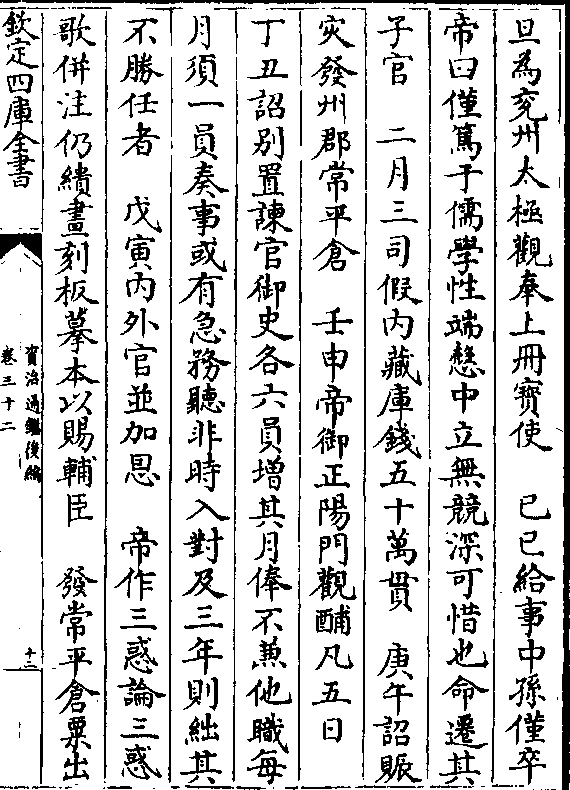 旦為兖州太極觀奉上冊寶使　已巳給事中孫僅卒
帝曰僅篤于儒學性端慤中立無競深可惜也命遷其
子官　二月三司假内藏庫錢五十萬貫　庚午詔賑
灾發州郡常平倉　壬申帝御正陽門觀酺凡五日
丁丑詔别置諫官御史各六員增其月俸不兼他職每
月須一員奏事或有急務聽非時入對及三年則絀其
不勝任者　戊寅内外官並加恩　帝作三惑論三惑
歌併注仍繢畫刻板摹本以賜輔臣　發常平倉粟出
欽定四庫全書
資治通鑑後編
卷三十二
十二